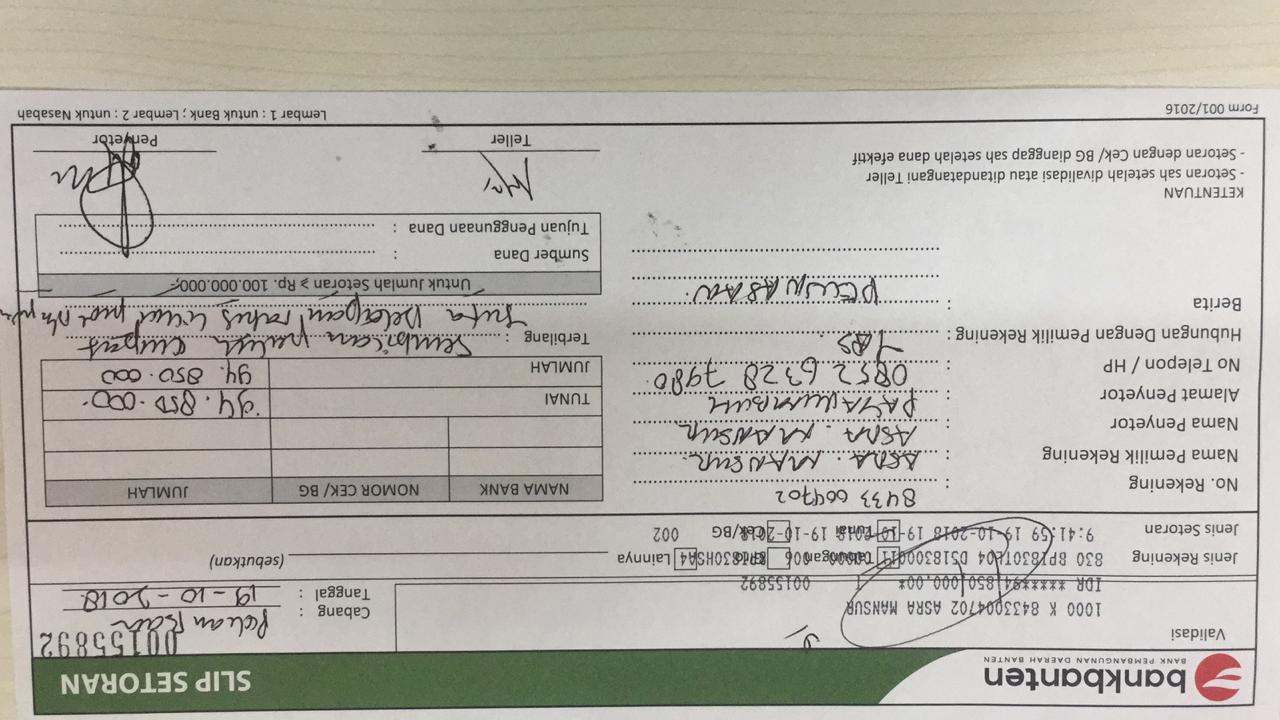 bankbanten
BANK PEMBANGUNAN DAERAH BANTEN
SLIP SETORAN
Validasi
00155892
1000 K 8433004702 ASRA MANSUR
IDR ******94,850,000.00*
00155892
Cabang :
Tanggal : 19-10-2018
Jenis Rekening
Tabungan
Lainnya
(sebutkan)
Jenis Setoran
9:41:59 19-10-2018 19-10-2018 19-10-2018
Tunai
Cek/BG
002
No. Rekening : 8433 004702
Nama Pemilik Rekening : ASRA. MANSUR.
Nama Penyetor : ASRA. MANSUR
Alamat Penyetor : PAYAKUMBUH
No Telepon / HP : 0852 6328 7980.
Hubungan Dengan Pemilik Rekening : YBS.
Berita :
NAMA BANK NOMOR CEK/ BG JUMLAH
TUNAI 94.850.000.
JUMLAH 94.850.000
Terbilang : Sembilan puluh empat
Juta Delapan ratus
Untuk Jumlah Setoran ≥ Rp. 100.000.000,-
Sumber Dana :
Tujuan Penggunaan Dana :
KETENTUAN
- Setoran sah setelah divalidasi atau ditandatangani Teller
- Setoran dengan Cek/ BG dianggap sah setelah dana efektif
Teller
Penyetor
Form 001/2016
Lembar 1 : untuk Bank ; Lembar 2 : untuk Nasabah